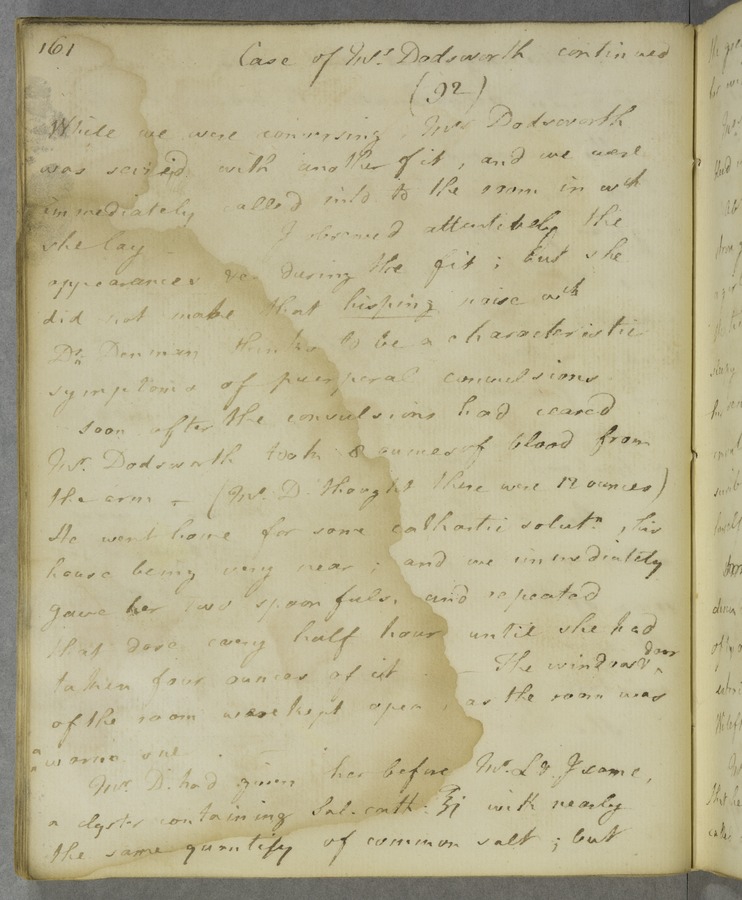 161
Case of Mrs. Dodsworth continued
(92)
While we were conversing, Mrs Dodsworth
was seized with another fit, and we were
immediately called into to the room in wch
she lay — I observed attentively the
appearances during the fit; but she
did not make that hissing noise wch
Dr. Denman thinks to be a characteristic
symptoms of puerperal convulsions
soon after the convulsions had ceased
Mr. Dodsworth took 8 ounces of blood from
the arm — (Mr. D. thought there were 12 ounces)
He went home for some cathartic solutn, his
house being very near; and we immediately
gave her two spoonfuls, and repeated
that dose every half hour until she had
taken four ounces of it — The windows & door
of the room were kept open, as the room was
a warm one
Mr. D. had given her before Mr. L & I came,
a clyster containing Sal. cath. ℥j with nearly
the same quantity of common salt; but